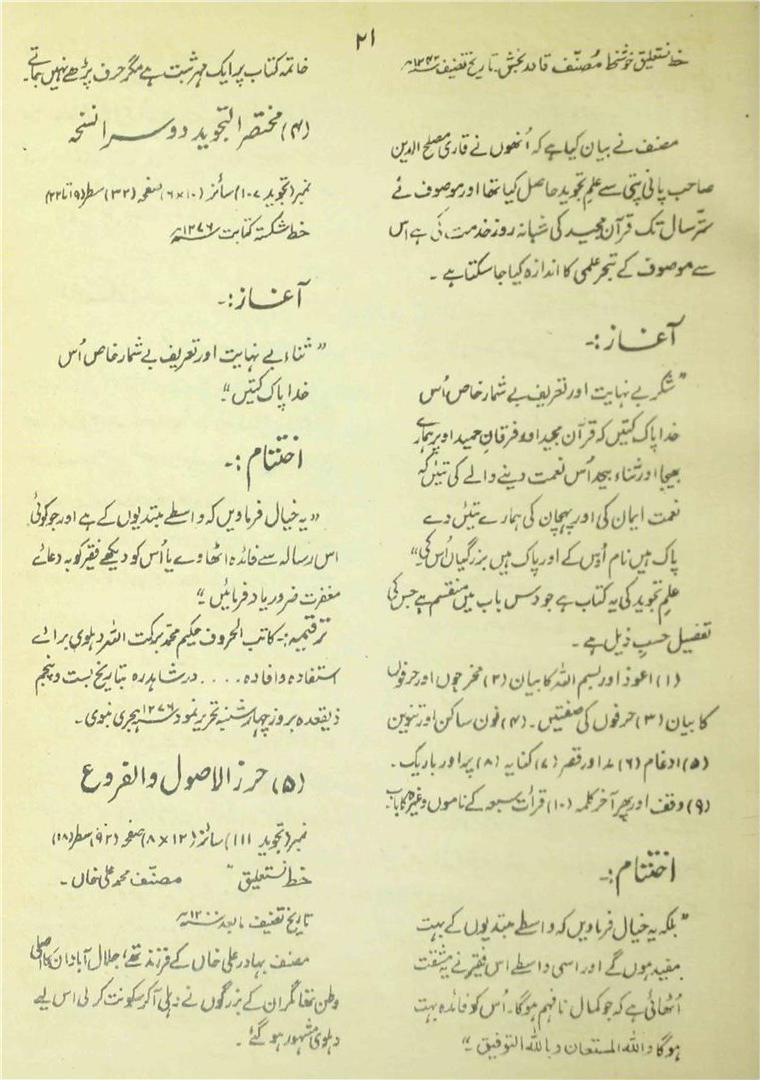 ۲۱
خط نستعلیق خوشخط مصنف قادر بخش۔ تاریخ تصنیف ۱۲۴۲ھ
مصنف نے بیان کیا ہے کہ اُنھوں نے قاری مصلح الدین
صاحب پانی پتی سے علم تجوید حاصل کیا تھا اور موصوف نے
ستّر سال تک قرآن مجید کی شبانہ روز خدمت کی ہے اس
سے موصوف کے تبحر علمی کا اندازہ کیا جاسکتا ہے ۔
آغاز :-
”شکر بے نہایت اور تعریف بے شمار خاص اُس
خدا پاک کتیں کہ قرآن مجید اور فرقان حمید اوپر ہمارے
بھیجا اور ثناء بیحد اُس نعمت دینے والے کی تئیں کہ
نعمت ایمان کی اور پہچان کی ہمارے تئیں دے
پاک ہیں نام اُوس کے اور پاک ہیں بزرگیاں اُس کی“
علم تجوید کی یہ کتاب ہے جو دس باب میں منقسم ہے جس کی
تفصیل حسب ذیل ہے ۔
(۱) اعوذ اور بسم اللہ کا بیان (۲) مخرجوں اور حرفوں
کا بیان (۳) حرفوں کی صفتیں۔ (۴) نون ساکن اور تنوین
(۵) ادغام (۶) مد اور قصر (۷) کنایہ (۸) پُر اور باریک ۔
(۹) وقف اور پھر آخر کلمہ (۱۰) قرأت سبعہ کے ناموں وغیرہ کا باب۔
اختتام :-
”بلکہ یہ خیال فرماویں کہ واسطے مبتدیوں کے بہت
مفید ہوں گے اور اسی واسطے اس فقیر نے یہ مشقت
اُٹھائی ہے کہ جو کمال نافہم ہوگا۔ اُس کو فائدہ بہت
ہوگا واللہ المستعان وباللہ التوفیق ۔“
خاتمہ کتاب پر ایک مہر ثبت ہے مگر حرف پڑھے نہیں جاتے۔
(۴) مختصر التجوید دوسرا نسخہ
نمبر (تجوید ۱۰۷) سائز (۱۰×۶) صفحہ (۳۲) سطر (۱۹ تا ۲۲)
خط شکستہ کتابت ۱۲۷۶ھ
آغاز :-
”ثناء بے نہایت اور تعریف بے شمار خاص اُس
خدا پاک کتیں“
اختتام :-
”یہ خیال فرماویں کہ واسطے مبتدیوں کے ہے اور جو کوئی
اس رسالہ سے فائدہ اٹھاوے یا اُس کو دیکھے فقیر کو بہ دعائے
مغفرت ضرور یاد فرمائیں ۔“
ترقیمہ :- کاتب الحروف حکیم محمد برکت اللہ دہلوی برائے
استفادہ و افادہ .... در شاہدرہ بتاریخ بست و پنجم
ذیقعدہ بروز چہار شنبہ تحریر نمود ۱۲۷۶ ہجری نبوی ۔
(۵) حرز الاصول والفروع
نمبر (تجوید ۱۱۱) سائز (۱۲×۸) صفحہ (۹۲) سطر (۱۸)
خط نستعلیق مصنف محمد علی خاں ۔
تاریخ تصنیف مابعد ۱۲۰۰ھ
مصنف بہادر علی خاں کے فرزند تھے، جلال آباد ان کا اصلی
وطن تھا مگر ان کے بزرگوں نے دہلی آکر سکونت کر لی اس لیے
دہلوی مشہور ہو گئے ۔